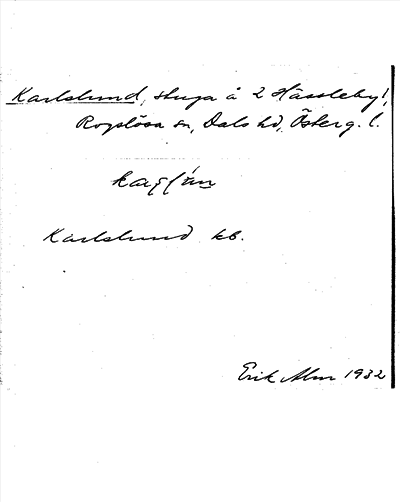 Karlslund, stuga å 2 Hässleby,
Rogslösa sn, Dals hd, Österg. l.
Karlslund kb.
Erik Alm 1932